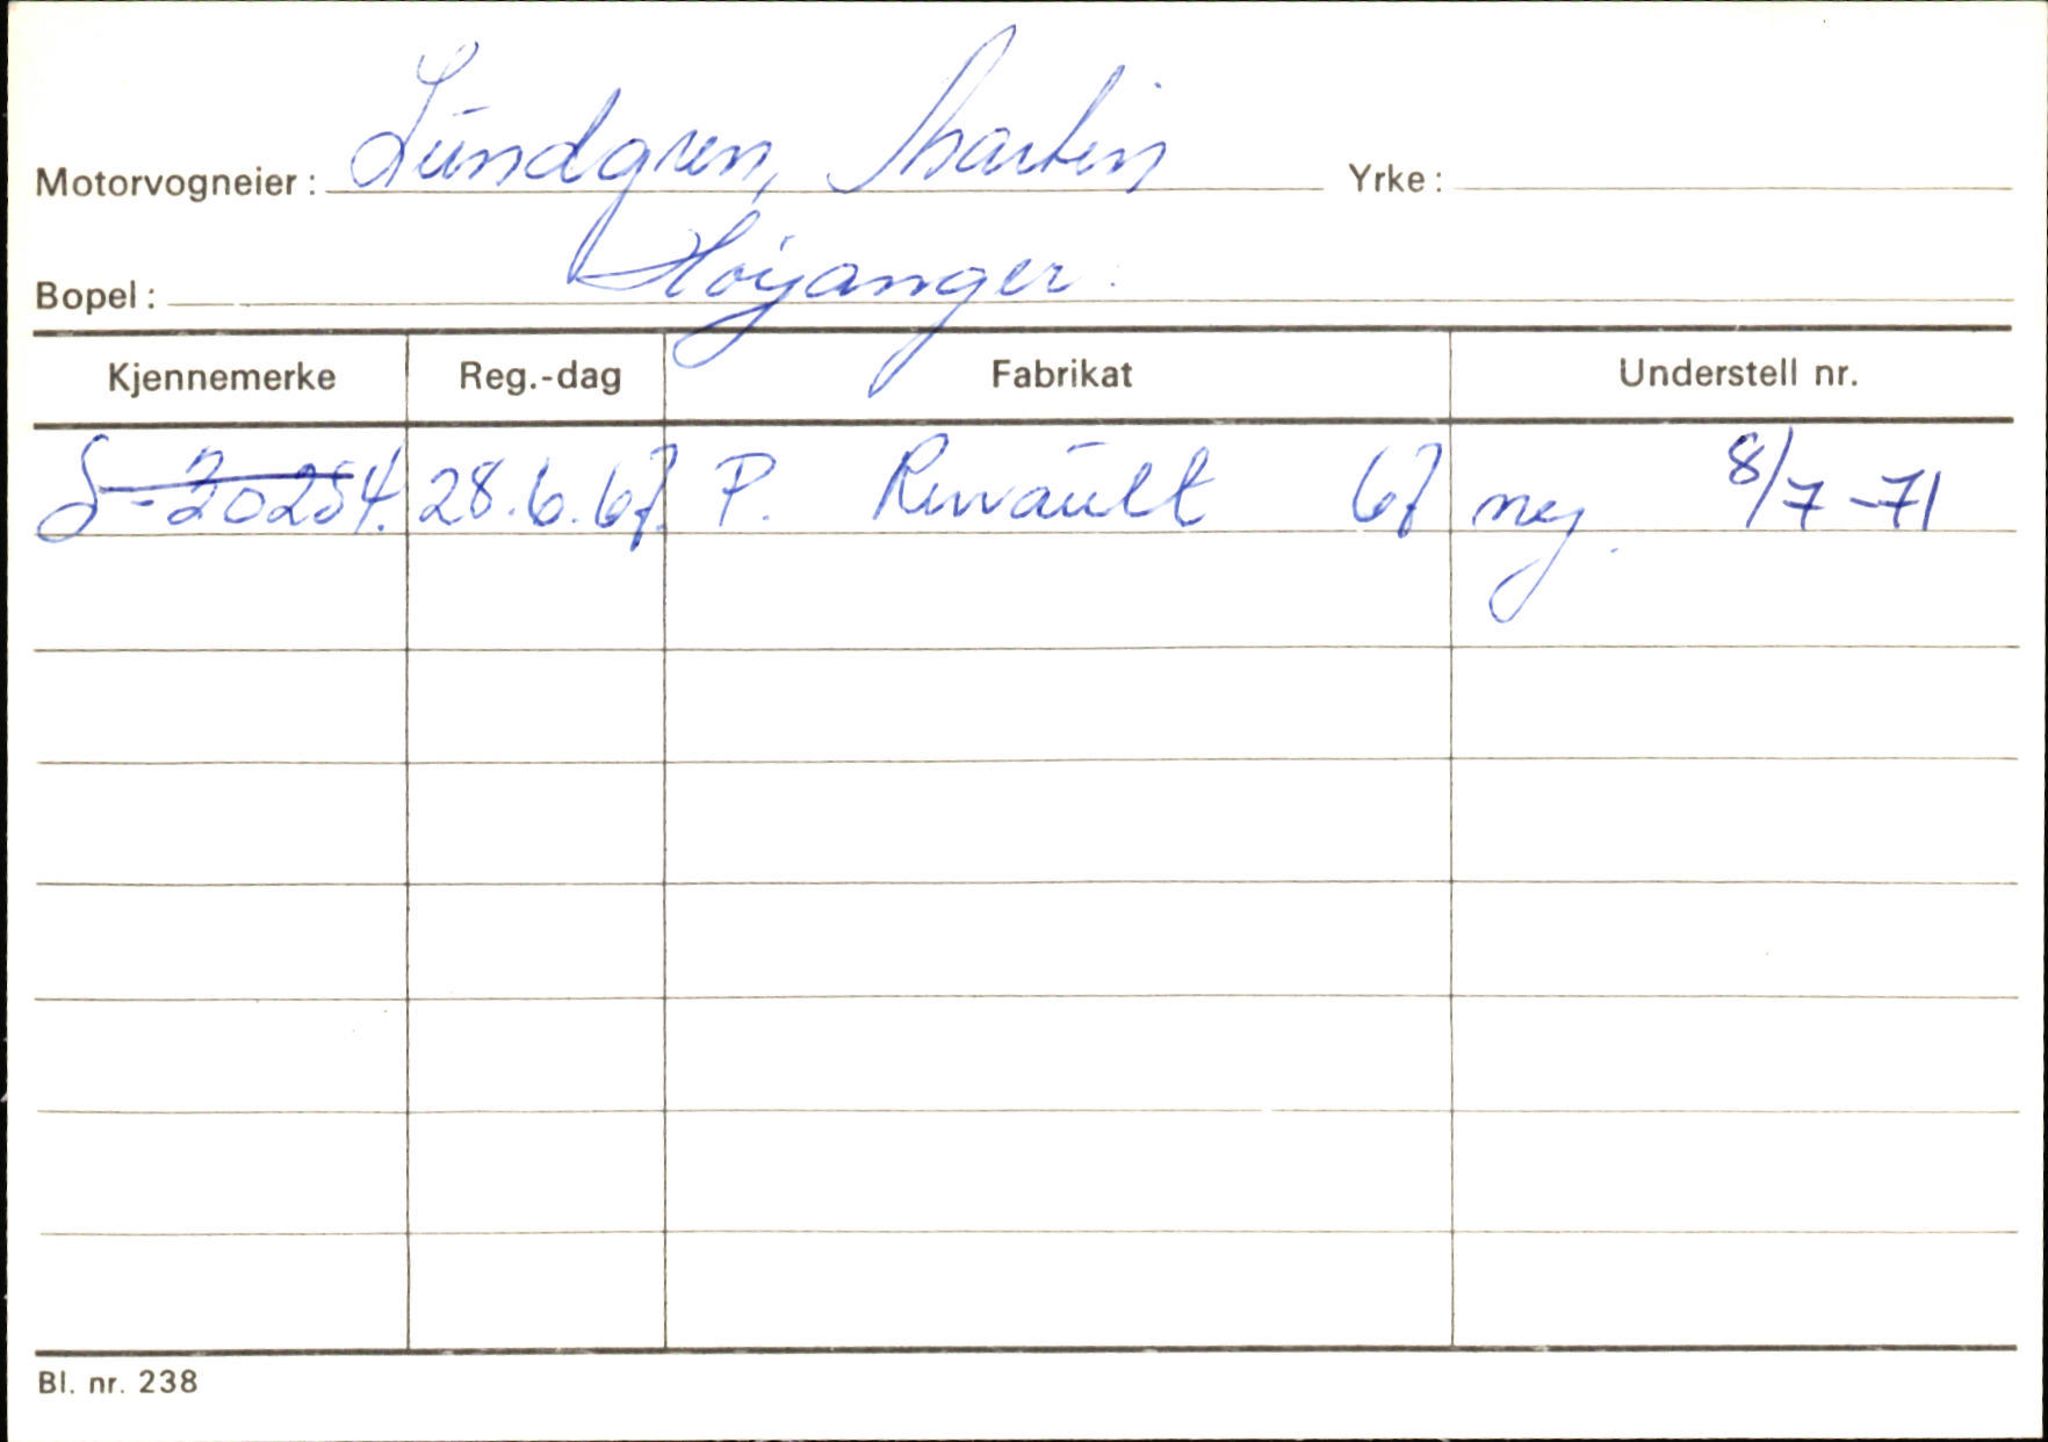 Motorvogneier: Lundgren, Martin Yrke:
Bopel: Høyanger.
Kjennemerke Reg.-dag Fabrikat Understell nr.
S-20254. 28.6.67. P. Renault 67 ny. 8/7-71
Bl. nr. 238